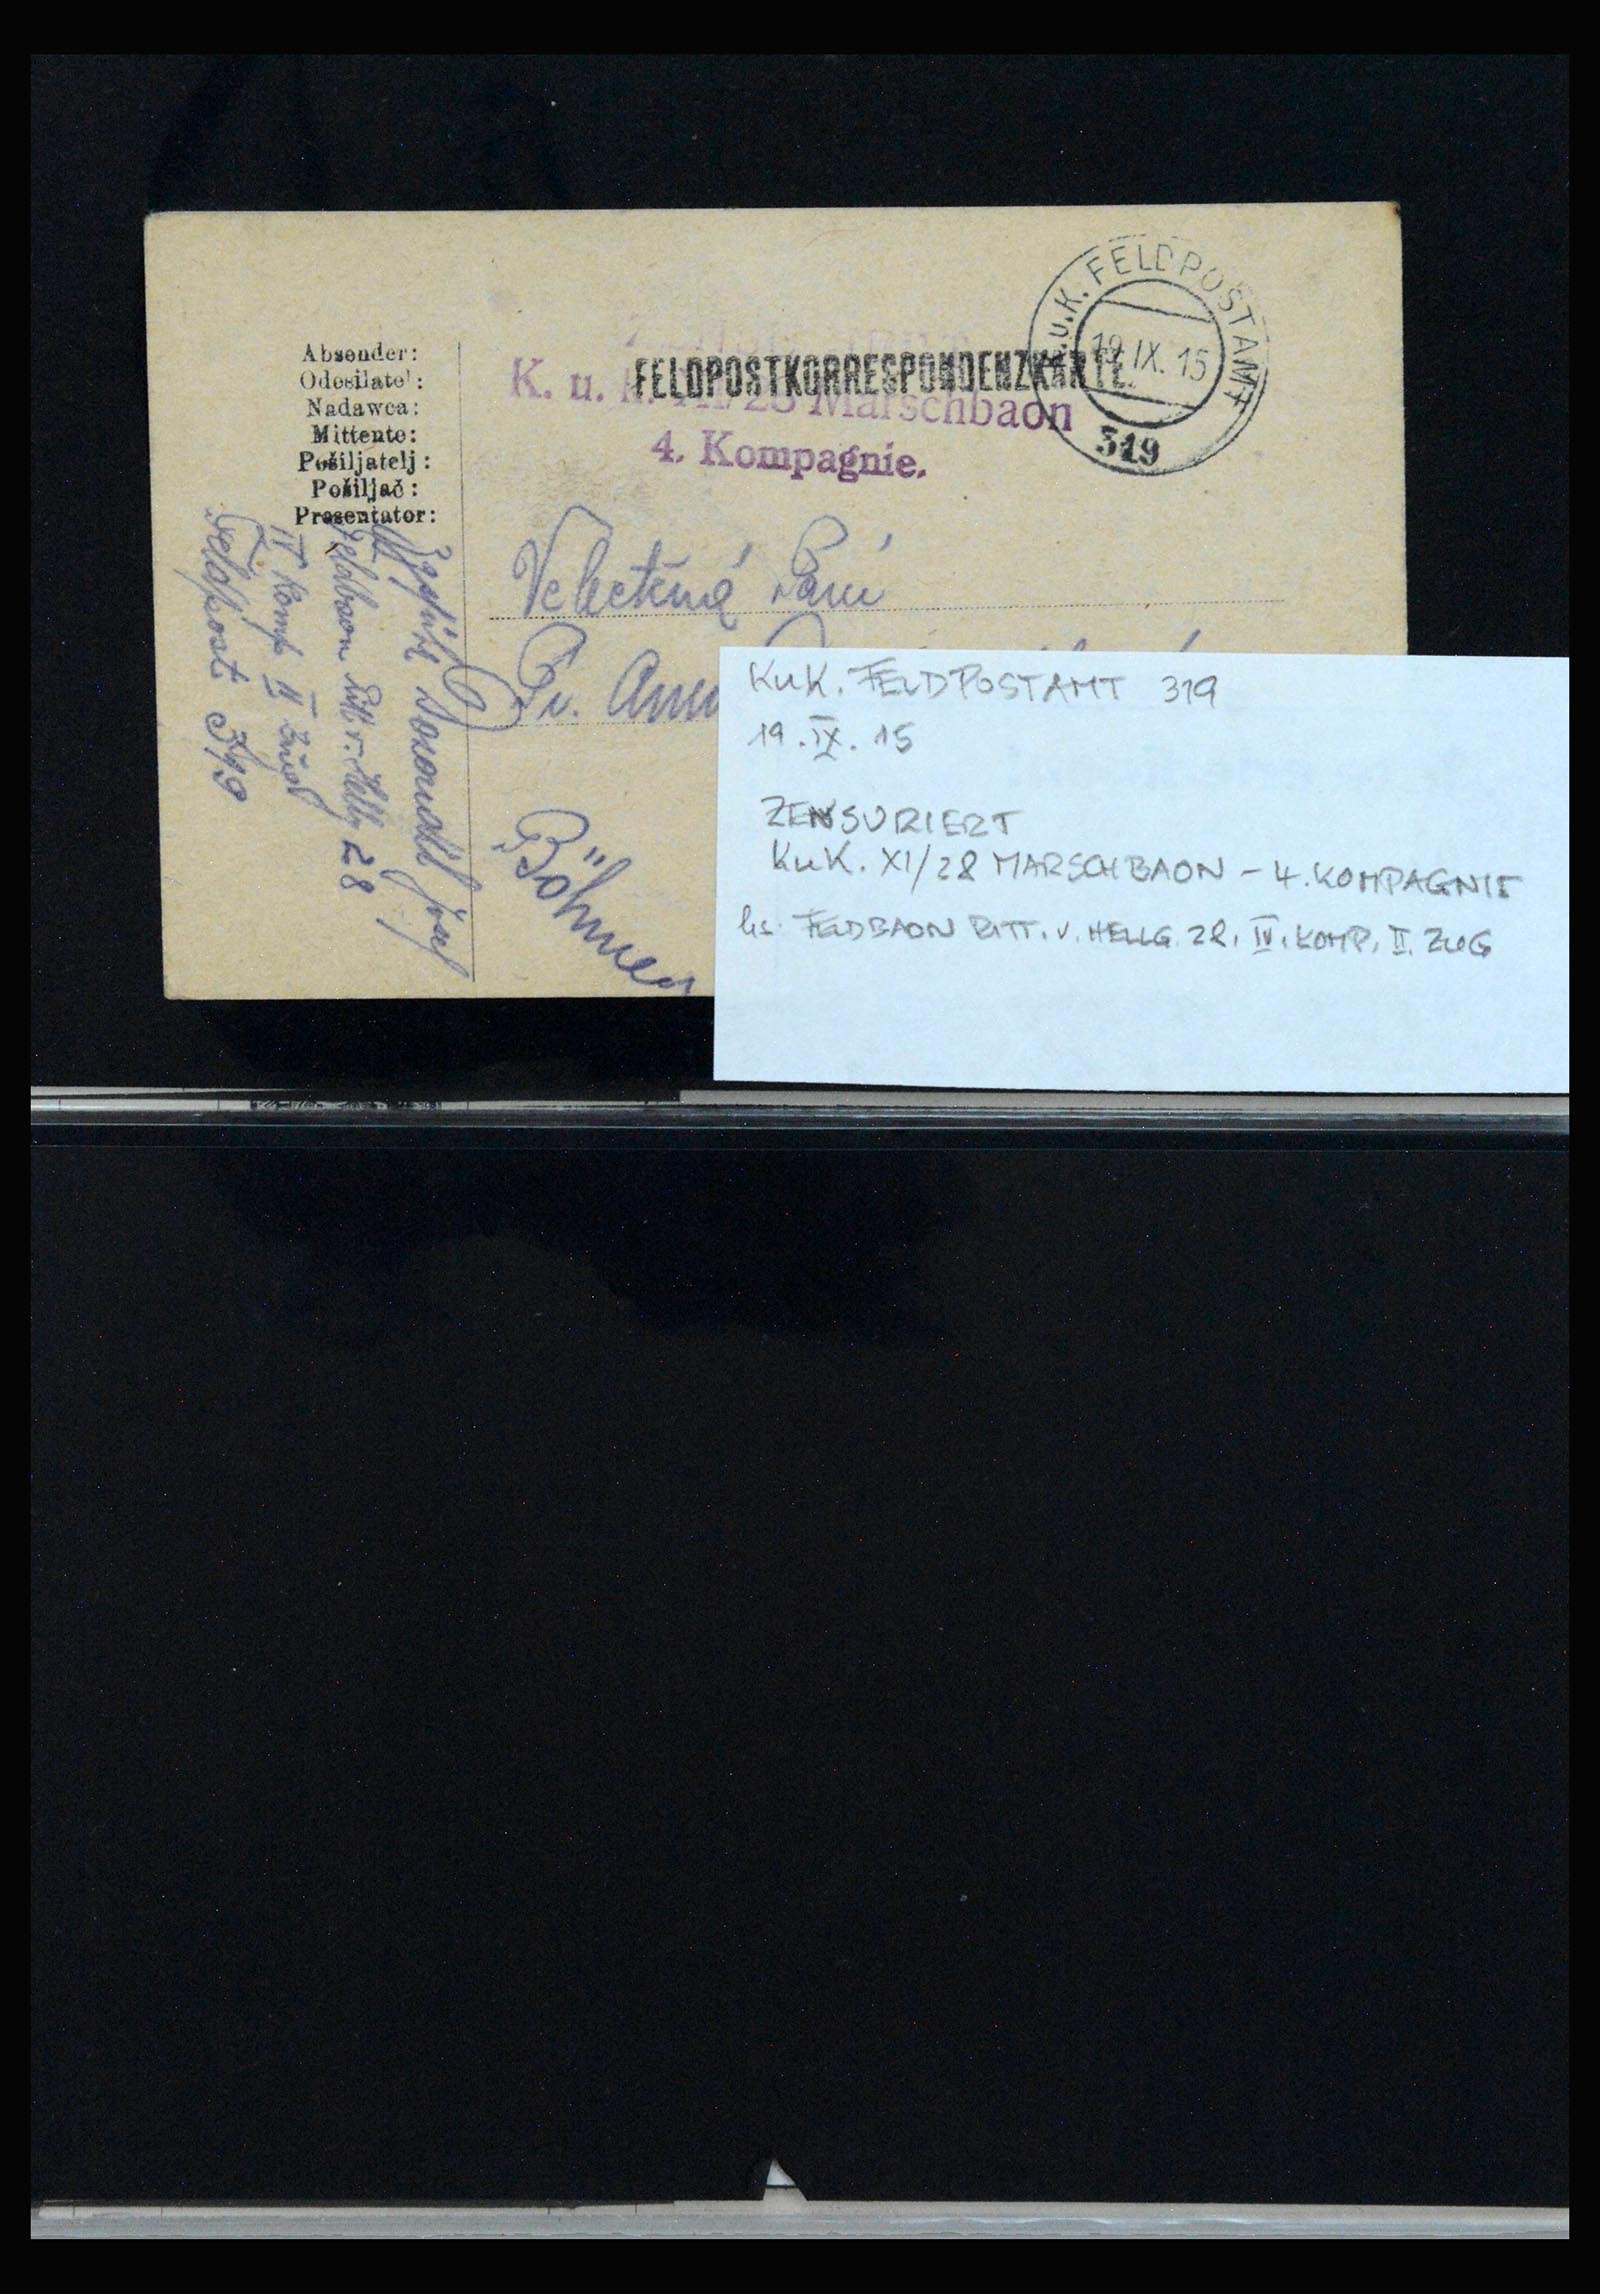 Absender:
Odesilatel:
Nadawca:
Mittente:
Pošiljatelj:
Pošiljač:
Presentator:
FELDPOSTKORRESPONDENZKARTE.
K. u. k. XI/28 Marschbaon
4. Kompagnie.
K.u.K. FELDPOSTAMT
19.IX.15
319
Velectěná Paní
Böhmen
Josef
Feldbaon 28
IV Komp II Zug
Feldpost 319
KuK. FELDPOSTAMT 319
19.IX.15
ZENSURIERT
KuK. XI/28 MARSCHBAON - 4. KOMPAGNIE
hs. FELDBAON RITT. v. HELLG 28, IV. KOMP, II. ZUG